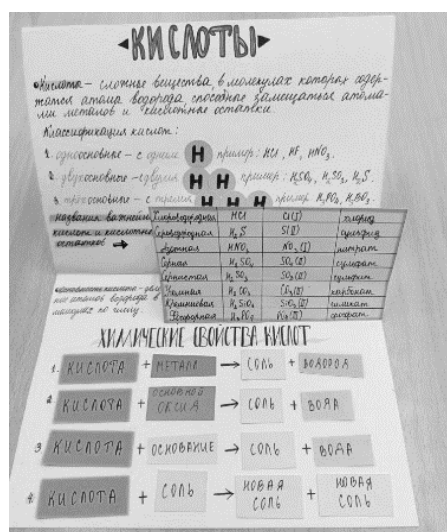 КИСЛОТЫ
•Кислота – сложные вещества, в молекулах которых содер-
жатся атомы водорода, способные замещаться атома-
ми металлов и кислотные остатки.
Классификация кислот:
1. одноосновные – с одним H пример: HCl, HF, HNO3.
2. двухосновные – с двумя H H пример: H2SO4, H2SO3, H2S.
3. трехосновные – с тремя H H H пример H3PO4, H3BO3.
названия важнейш
кислот и кислотных
остатков →
Хлороводородная HCl Cl(I) хлорид
Сероводородная H2S S(II) сульфид
Азотная HNO3 NO3(I) нитрат
Серная H2SO4 SO4(II) сульфат
Сернистая H2SO3 SO3(II) сульфит
Угольная H2CO3 CO3(II) карбонат
Кремниевая H2SiO3 SiO3(II) силикат
Фосфорная H3PO4 фосфат
ХИМИЧЕСКИЕ СВОЙСТВА КИСЛОТ
1. КИСЛОТА + МЕТАЛЛ → СОЛЬ + ВОДОРОД
2 КИСЛОТА + ОСНОВНОЙ ОКСИД → СОЛЬ + ВОДА
3 КИСЛОТА + ОСНОВАНИЕ → СОЛЬ + ВОДА
4 КИСЛОТА + СОЛЬ → НОВАЯ СОЛЬ + НОВАЯ СОЛЬ